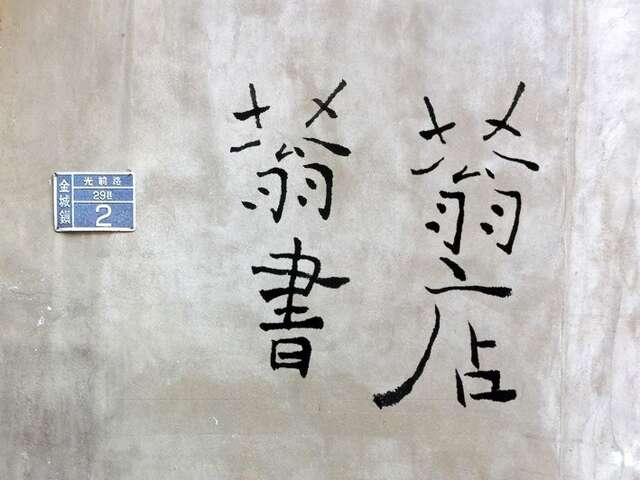 蓊店
蓊書
金城鎮
光前路
29巷
2